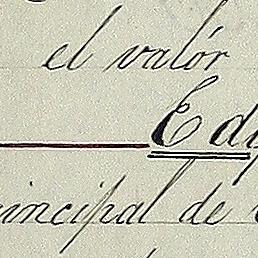 el valór
principal de